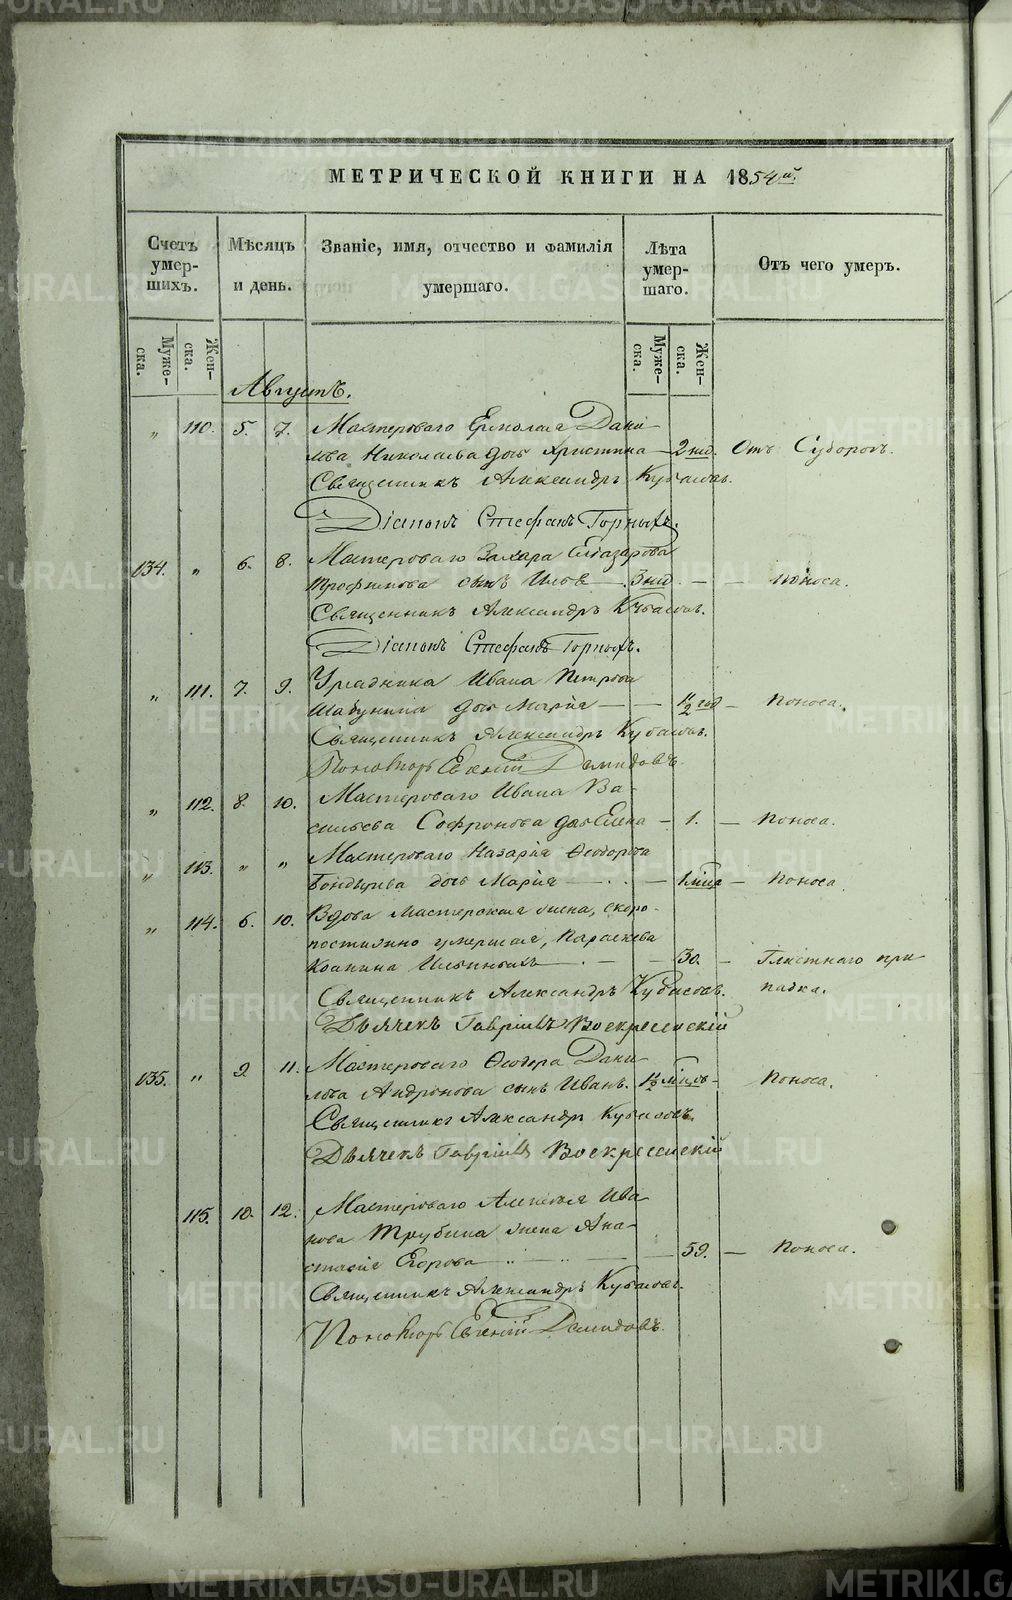 МЕТРИЧЕСКОЙ КНИГИ НА 1854й.
Счетъ умер-шихъ.
Мѣсяцъ и день.
Званіе, имя, отчество и фамилія умершаго.
Лѣта умер-шаго.
Отъ чего умеръ.
Муже-ска.
Жен-ска.
Муже-ска.
Жен-ска.
Августъ.
„ 110. 5. 7. Мастероваго Ермолая Дани-
лова Николаева дочь Христина — 2 нед. Отъ
Священникъ Александръ Кубасовъ.
Діаконъ Стефанъ Горныхъ.
134. „ 6. 8. Мастероваго Захара Елеазарова
Трофимова сынъ Илья — 3 нед. — — поноса.
Священникъ Александръ Кубасовъ.
Діаконъ Стефанъ Горныхъ.
„ 111. 7. 9. Урядника Ивана Петрова
Шабунина дочь Марія — — 1/2 год — поноса.
Священникъ Александръ Кубасовъ.
Пономарь Евгеній Демидовъ.
„ 112. 8. 10. Мастероваго Ивана Ва-
сильева Софронова дочь Елена — 1. — поноса.
„ 113. „ „ Мастероваго Назарія Ѳеодорова
дочь Марія — — — поноса.
„ 114. 6. 10. Вдова Мастерская жена, скоро-
постижно умершая, Параскева
Ильиныхъ — — 30. —
припадка.
Священникъ Александръ Кубасовъ.
Дьячекъ Гавріилъ Воскресенскій
135. „ 9. 11. Мастероваго Ѳеодора Дани-
лова Андронова сынъ Иванъ. 1 1/2 — поноса.
Священникъ Александръ Кубасовъ.
Дьячекъ Гавріилъ Воскресенскій
115. 10. 12. Мастероваго Алексѣя Ива-
нова Трубина жена Ана-
стасія Егорова — — 59. — поноса.
Священникъ Александръ Кубасовъ.
Пономарь Евгеній Демидовъ.
METRIKI.GASO-URAL.RU